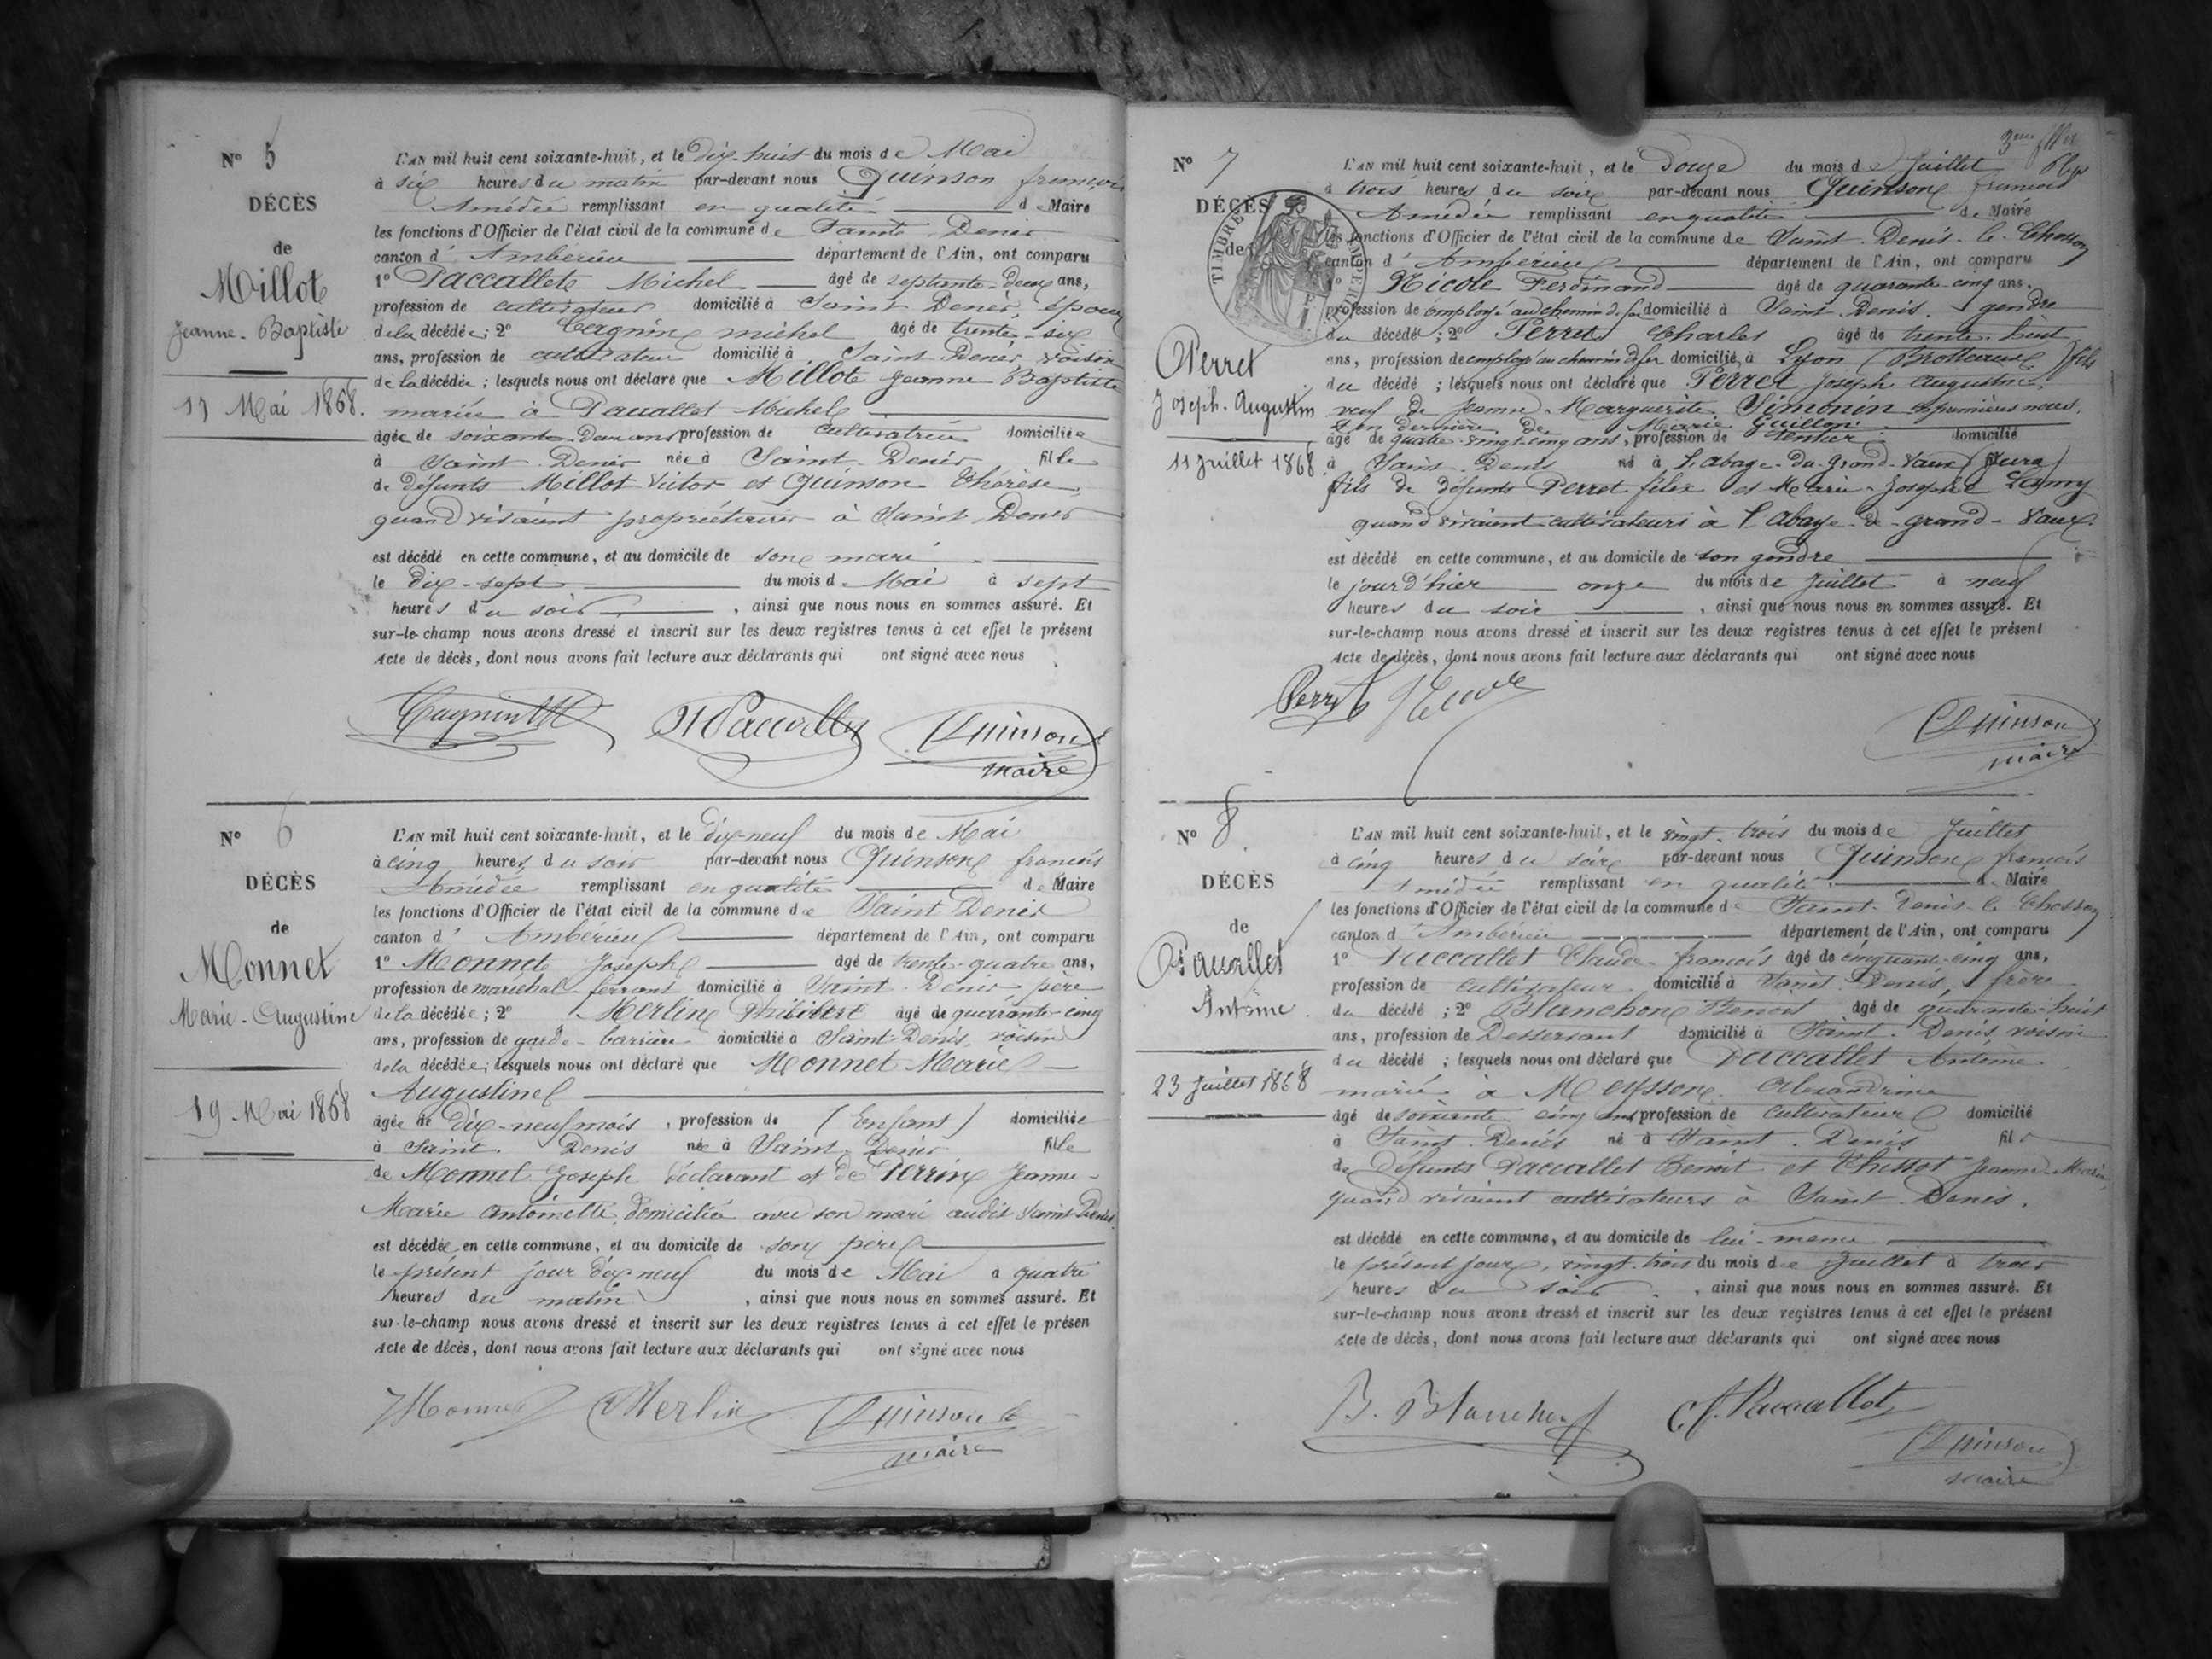 N° 5
DÉCÈS
de
Millot
Jeanne-Baptiste
17 Mai 1868.
L'AN mil huit cent soixante-huit, et le Dix-huit du mois de Mai
à six heures du matin par-devant nous Quinson françois
Amédée remplissant en qualité de Maire
les fonctions d'Officier de l'état civil de la commune de Saint Denis
canton d'Ambérieu département de l'Ain, ont comparu
1° Paccallet Michel âgé de septante-deux ans,
profession de cultivateur domicilié à Saint Denis, époux
de la décédée; 2° Cagnin michel âgé de trente-six
ans, profession de cultivateur domicilié à Saint Denis voisin
de la décédée; lesquels nous ont déclaré que Millot Jeanne Baptiste
mariée à Paccallet Michel
âgée de soixante-deux ans profession de cultivatrice domiciliée
à Saint Denis née à Saint-Denis fille
de défunts Millot Victor et Quinson Thérèse,
quand vivaient propriétaires à Saint Denis
est décédé en cette commune, et au domicile de son mari
le dix-sept du mois de Mai à sept
heures du soir, ainsi que nous nous en sommes assuré. Et
sur-le-champ nous avons dressé et inscrit sur les deux registres tenus à cet effet le présent
Acte de décès, dont nous avons fait lecture aux déclarants qui ont signé avec nous
Cagnin M Paccallet Quinson
maire
N° 6
DÉCÈS
de
Monnet
Marie-Augustine
19 Mai 1868
L'AN mil huit cent soixante-huit, et le dix-neuf du mois de Mai
à cinq heures du soir par-devant nous Quinson françois
Amédée remplissant en qualité de Maire
les fonctions d'Officier de l'état civil de la commune de Saint Denis
canton d'Ambérieu département de l'Ain, ont comparu
1° Monnet Joseph âgé de trente-quatre ans,
profession de maréchal-ferrant domicilié à Saint-Denis père
de la décédée; 2° Merlin Philibert âgé de quarante-cinq
ans, profession de garde-barrière domicilié à Saint-Denis, voisin
de la décédée; lesquels nous ont déclaré que Monnet Marie
Augustine
âgée de Dix-neuf mois, profession de (Enfant) domiciliée
à Saint-Denis née à Saint-Denis fille
de Monnet Joseph déclarant et de Perrin Jeanne-
Marie antoinette, domiciliée avec son mari audit Saint-Denis
est décédée en cette commune, et au domicile de son père
le présent jour dix-neuf du mois de Mai à quatre
heures du matin, ainsi que nous nous en sommes assuré. Et
sur-le-champ nous avons dressé et inscrit sur les deux registres tenus à cet effet le présen
Acte de décès, dont nous avons fait lecture aux déclarants qui ont signé avec nous
Monnet Merlin Quinson
maire
3eme
N° 7
DÉCÈS
de
TIMBRE
Perret
Joseph-Augustin
11 Juillet 1868
L'AN mil huit cent soixante-huit, et le Douze du mois de Juillet
à trois heures du soir par-devant nous Quinson francois
Amédée remplissant en qualité de Maire
les fonctions d'Officier de l'état civil de la commune de Saint-Denis-le-Chosson
canton d'Ambérieu département de l'Ain, ont comparu
1° Nicole Ferdinand âgé de quarante-cinq ans,
profession de employé au chemin de fer domicilié à Saint-Denis, gendre
du décédé; 2° Perret Charles âgé de trente-huit
ans, profession de employé au chemin de fer domicilié à Lyon (Brotteaux) fils
du décédé; lesquels nous ont déclaré que Perret Joseph augustin,
veuf de Jeanne-Marguerite Simonin en premières noces,
et en dernière de Marie Guillon
âgé de quatre-vingt-cinq ans, profession de rentier domicilié
à Saint-Denis né à l'abaye-du-grand-Vaux (Jura)
fils de défunts Perret félix et Marie-Josephe Lamy
quand vivaient cultivateurs à l'Abaye-de-grand-Vaux.
est décédé en cette commune, et au domicile de son gendre
le jour d'hier onze du mois de Juillet à neuf
heures du soir, ainsi que nous nous en sommes assuré. Et
sur-le-champ nous avons dressé et inscrit sur les deux registres tenus à cet effet le présent
Acte de décès, dont nous avons fait lecture aux déclarants qui ont signé avec nous
Perret Nicole
Quinson
maire
N° 8
DÉCÈS
de
Paccallet
Antoine
23 Juillet 1868
L'AN mil huit cent soixante-huit, et le vingt-trois du mois de Juillet
à cinq heures du soir par-devant nous Quinson francois
Amédée remplissant en qualité de Maire
les fonctions d'Officier de l'état civil de la commune de Saint-Denis-le-Chosson
canton d'Ambérieu département de l'Ain, ont comparu
1° Paccallet Claude-francois âgé de cinquante-cinq ans,
profession de cultivateur domicilié à Saint-Denis, frère
du décédé; 2° Blanchon Benoit âgé de quarante-huit
ans, profession de Desservant domicilié à Saint-Denis, voisin
du décédé; lesquels nous ont déclaré que Paccallet Antoine
marié à Meysson Alexandrine
âgé de soixante cinq ans profession de cultivateur domicilié
à Saint-Denis né à Saint-Denis fils
de Défunts Paccallet Benoit et Thissot Jeanne-Marie,
quand vivaient cultivateurs à Saint-Denis.
est décédé en cette commune, et au domicile de lui-même
le présent jour, vingt-trois du mois de Juillet à trois
heures du soir, ainsi que nous nous en sommes assuré. Et
sur-le-champ nous avons dressé et inscrit sur les deux registres tenus à cet effet le présent
Acte de décès, dont nous avons fait lecture aux déclarants qui ont signé avec nous
B. Blanchon C. f. Paccallet
Quinson
maire